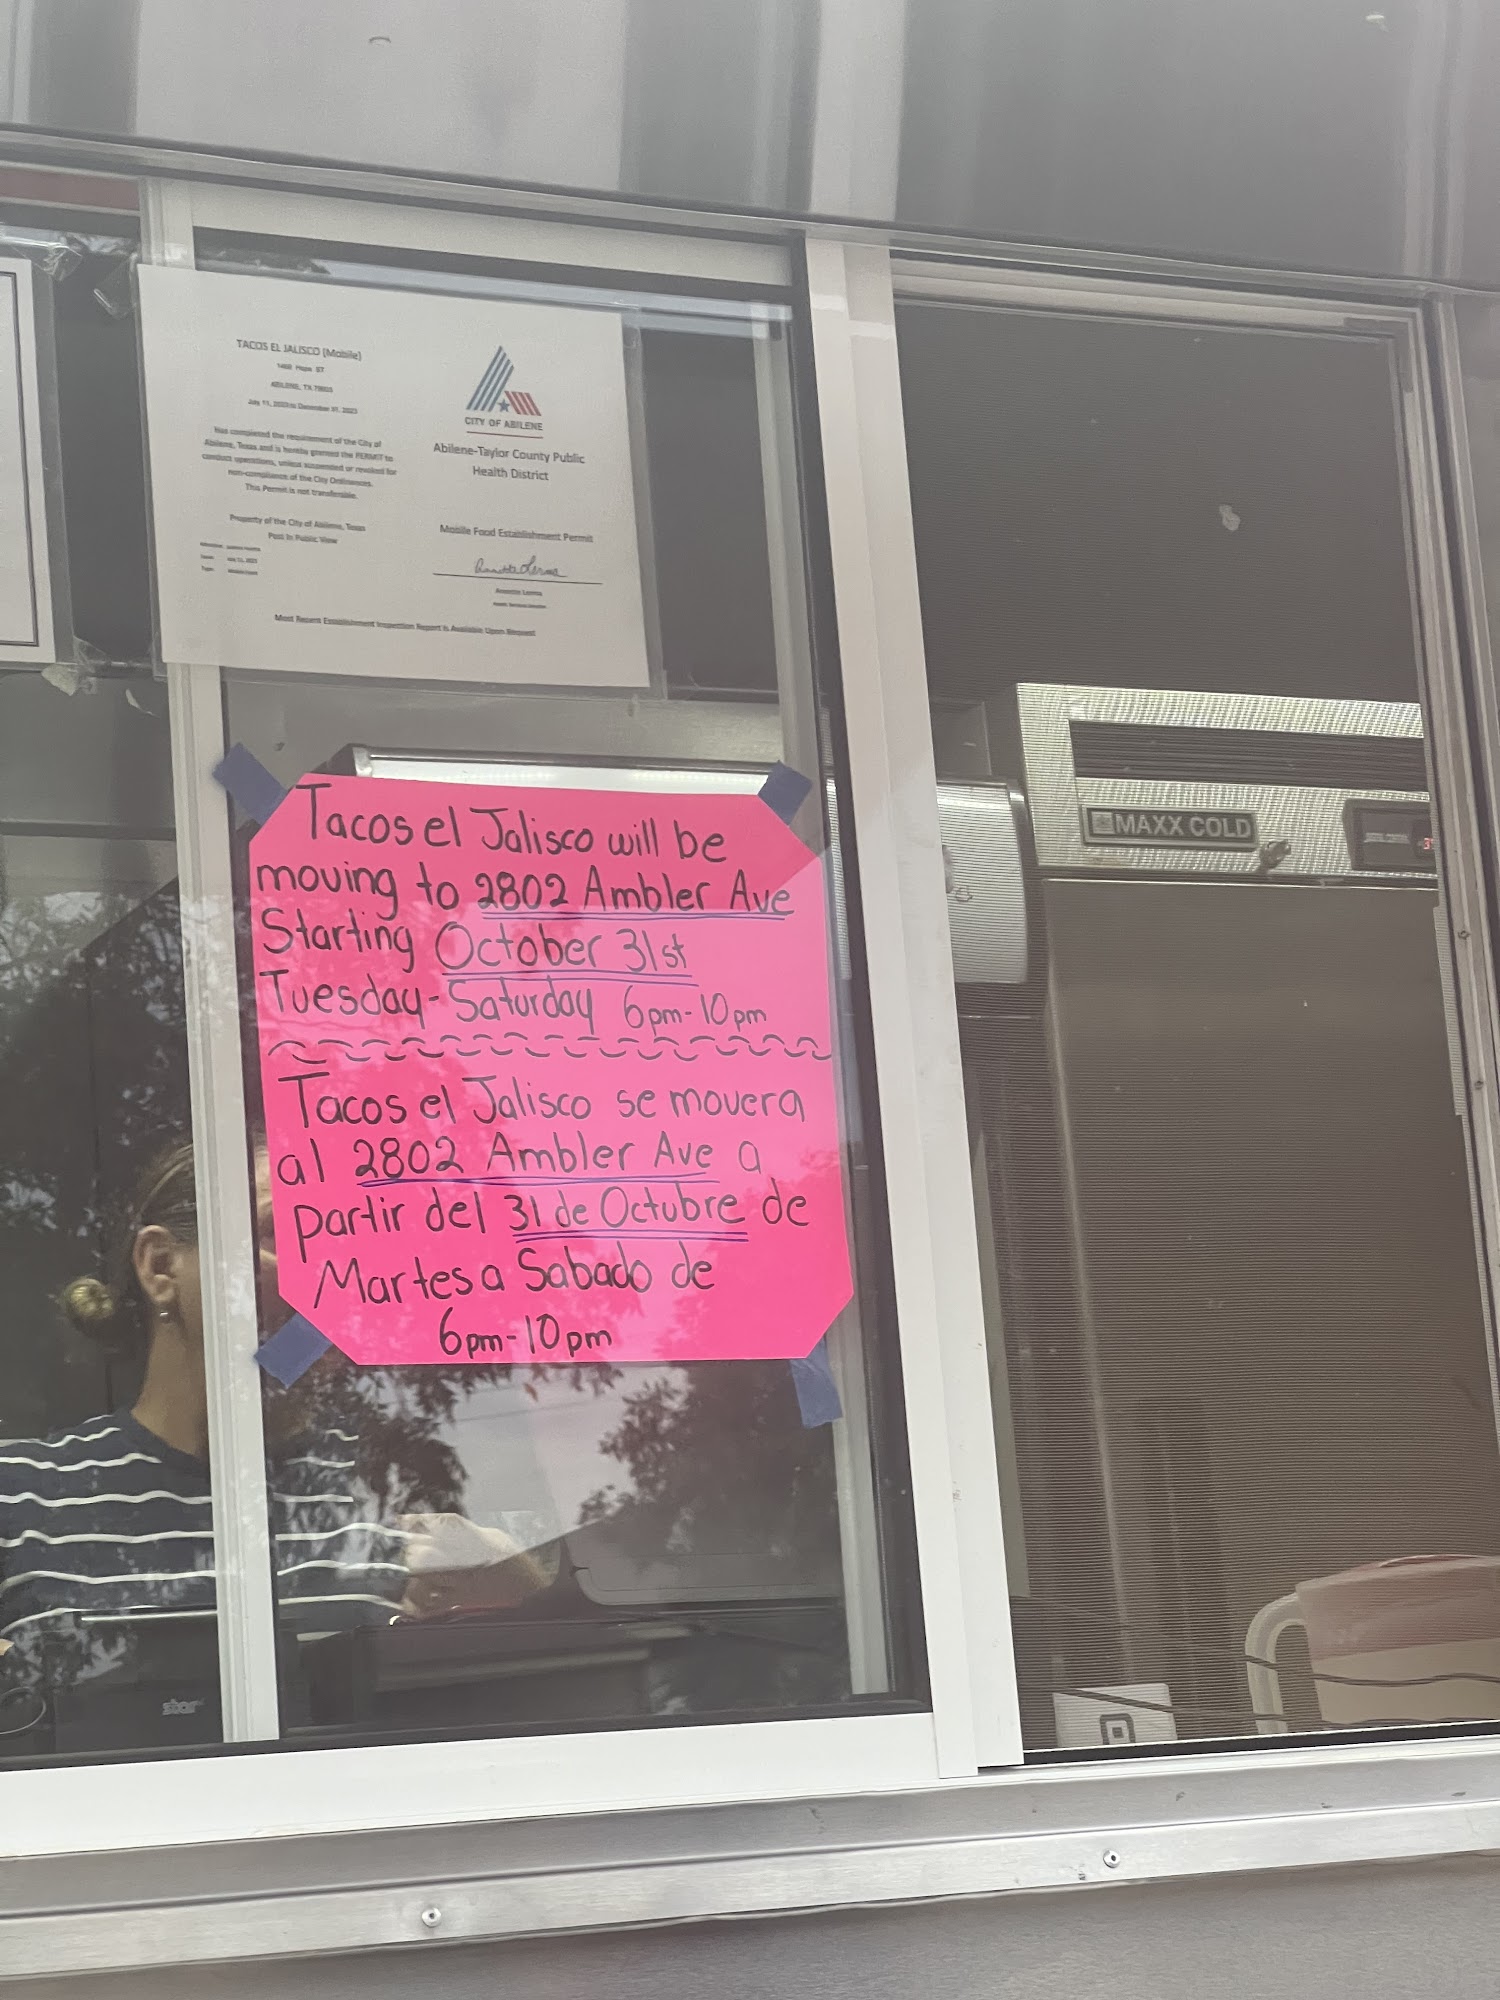 TACOS EL JALISCO (Mobile)
ABILENE, TX
July 11, 2023 to December 31, 2023
Has completed the requirement of the City of
Abilene, Texas and is hereby granted the PERMIT to
conduct operations, unless suspended or revoked for
non-compliance of the City Ordinances.
This Permit is not transferable.
Property of the City of Abilene, Texas
Post In Public View
CITY OF ABILENE
Abilene-Taylor County Public
Health District
Mobile Food Establishment Permit
Annette Lerma
Annette Lerma
Most Recent Establishment Inspection Report is Available Upon Request
Tacos el Jalisco will be
moving to 2802 Ambler Ave
Starting October 31st
Tuesday-Saturday 6pm-10pm
Tacos el Jalisco se movera
al 2802 Ambler Ave a
partir del 31 de Octubre de
Martes a Sabado de
6pm-10pm
MAXX COLD
star